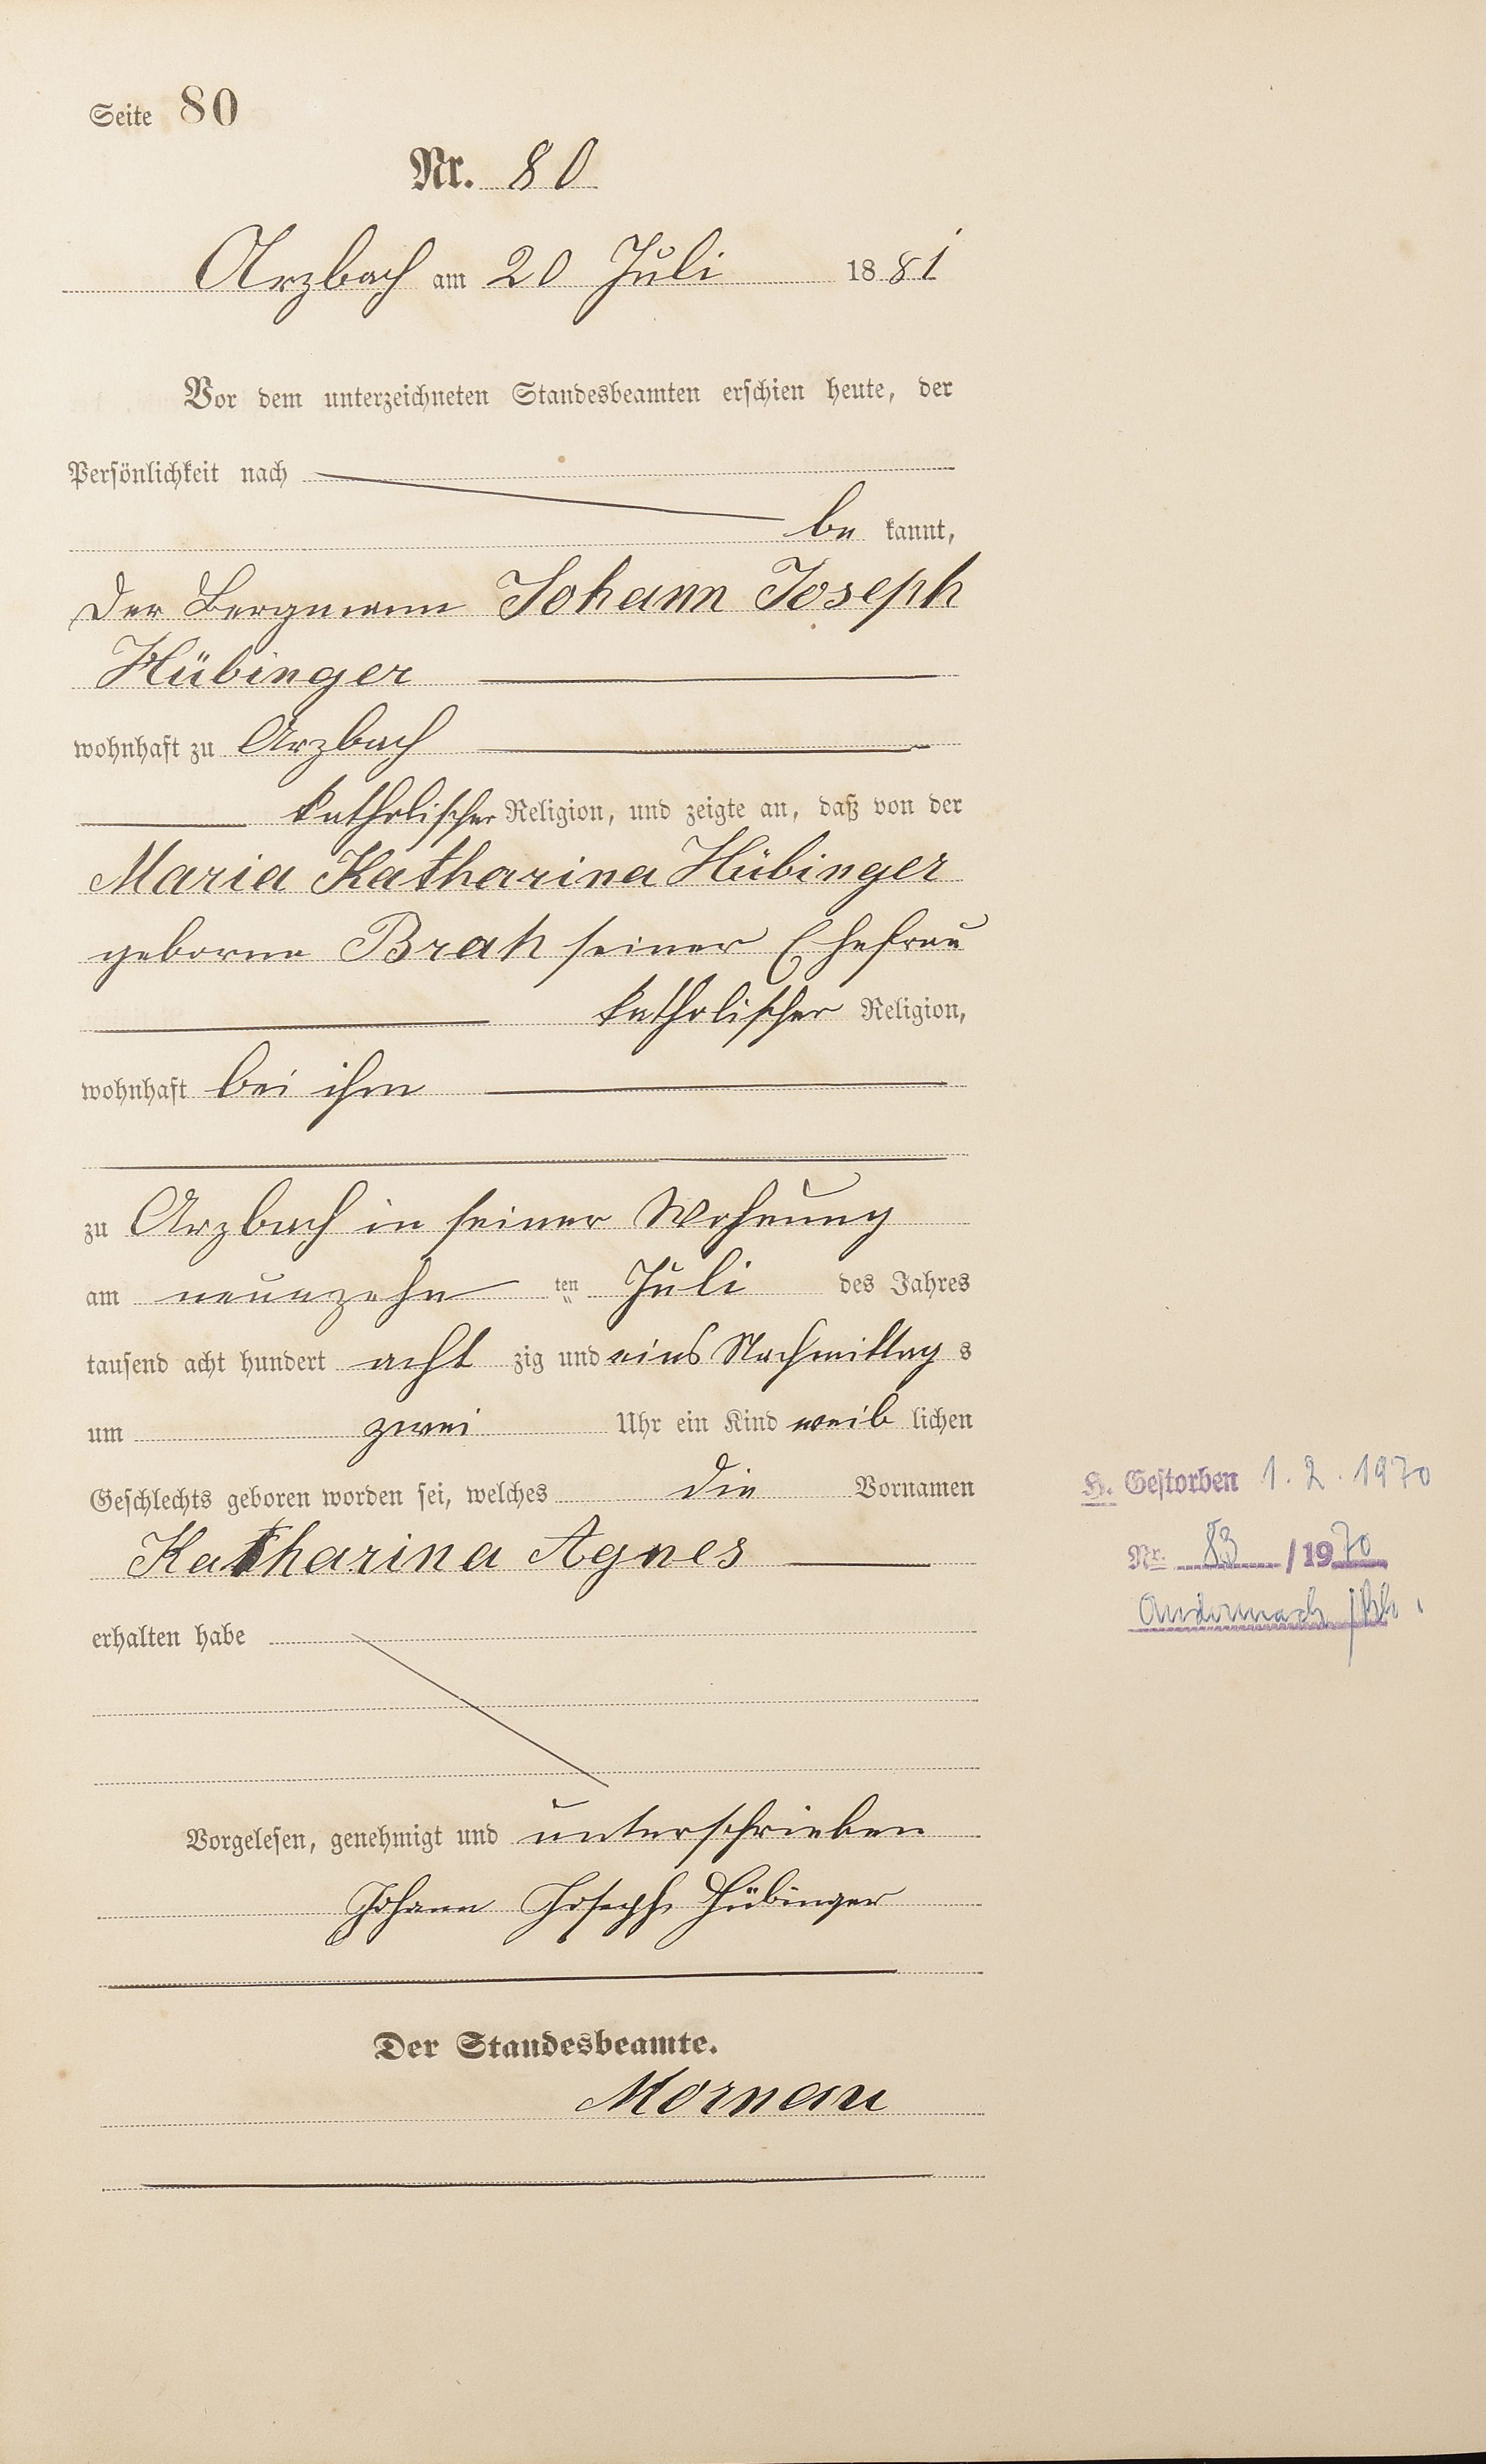 Seite 80
Nr. 80
Arzbach am 20 Juli 1881
Vor dem unterzeichneten Standesbeamten erschien heute, der
Persönlichkeit nach
be kannt,
der Bergmann Johann Joseph
Hübinger
wohnhaft zu Arzbach
katholischer Religion, und zeigte an, daß von der
Maria Katharina Hübinger
geborne Brah seiner Ehefrau
katholischer Religion,
wohnhaft bei ihm
zu Arzbach in seiner Wohnung
am neunzehn ten Juli des Jahres
tausend acht hundert acht zig und eins Nachmittag s
um zwei Uhr ein Kind weib lichen
Geschlechts geboren worden sei, welches die Vornamen
Katharina Agnes
erhalten habe
H. Gestorben 1.2.1970
Nr. 83 /1970
Andernach /Rh.
Vorgelesen, genehmigt und unterschrieben
Johann Joseph Hübinger
Der Standesbeamte.
Mornau